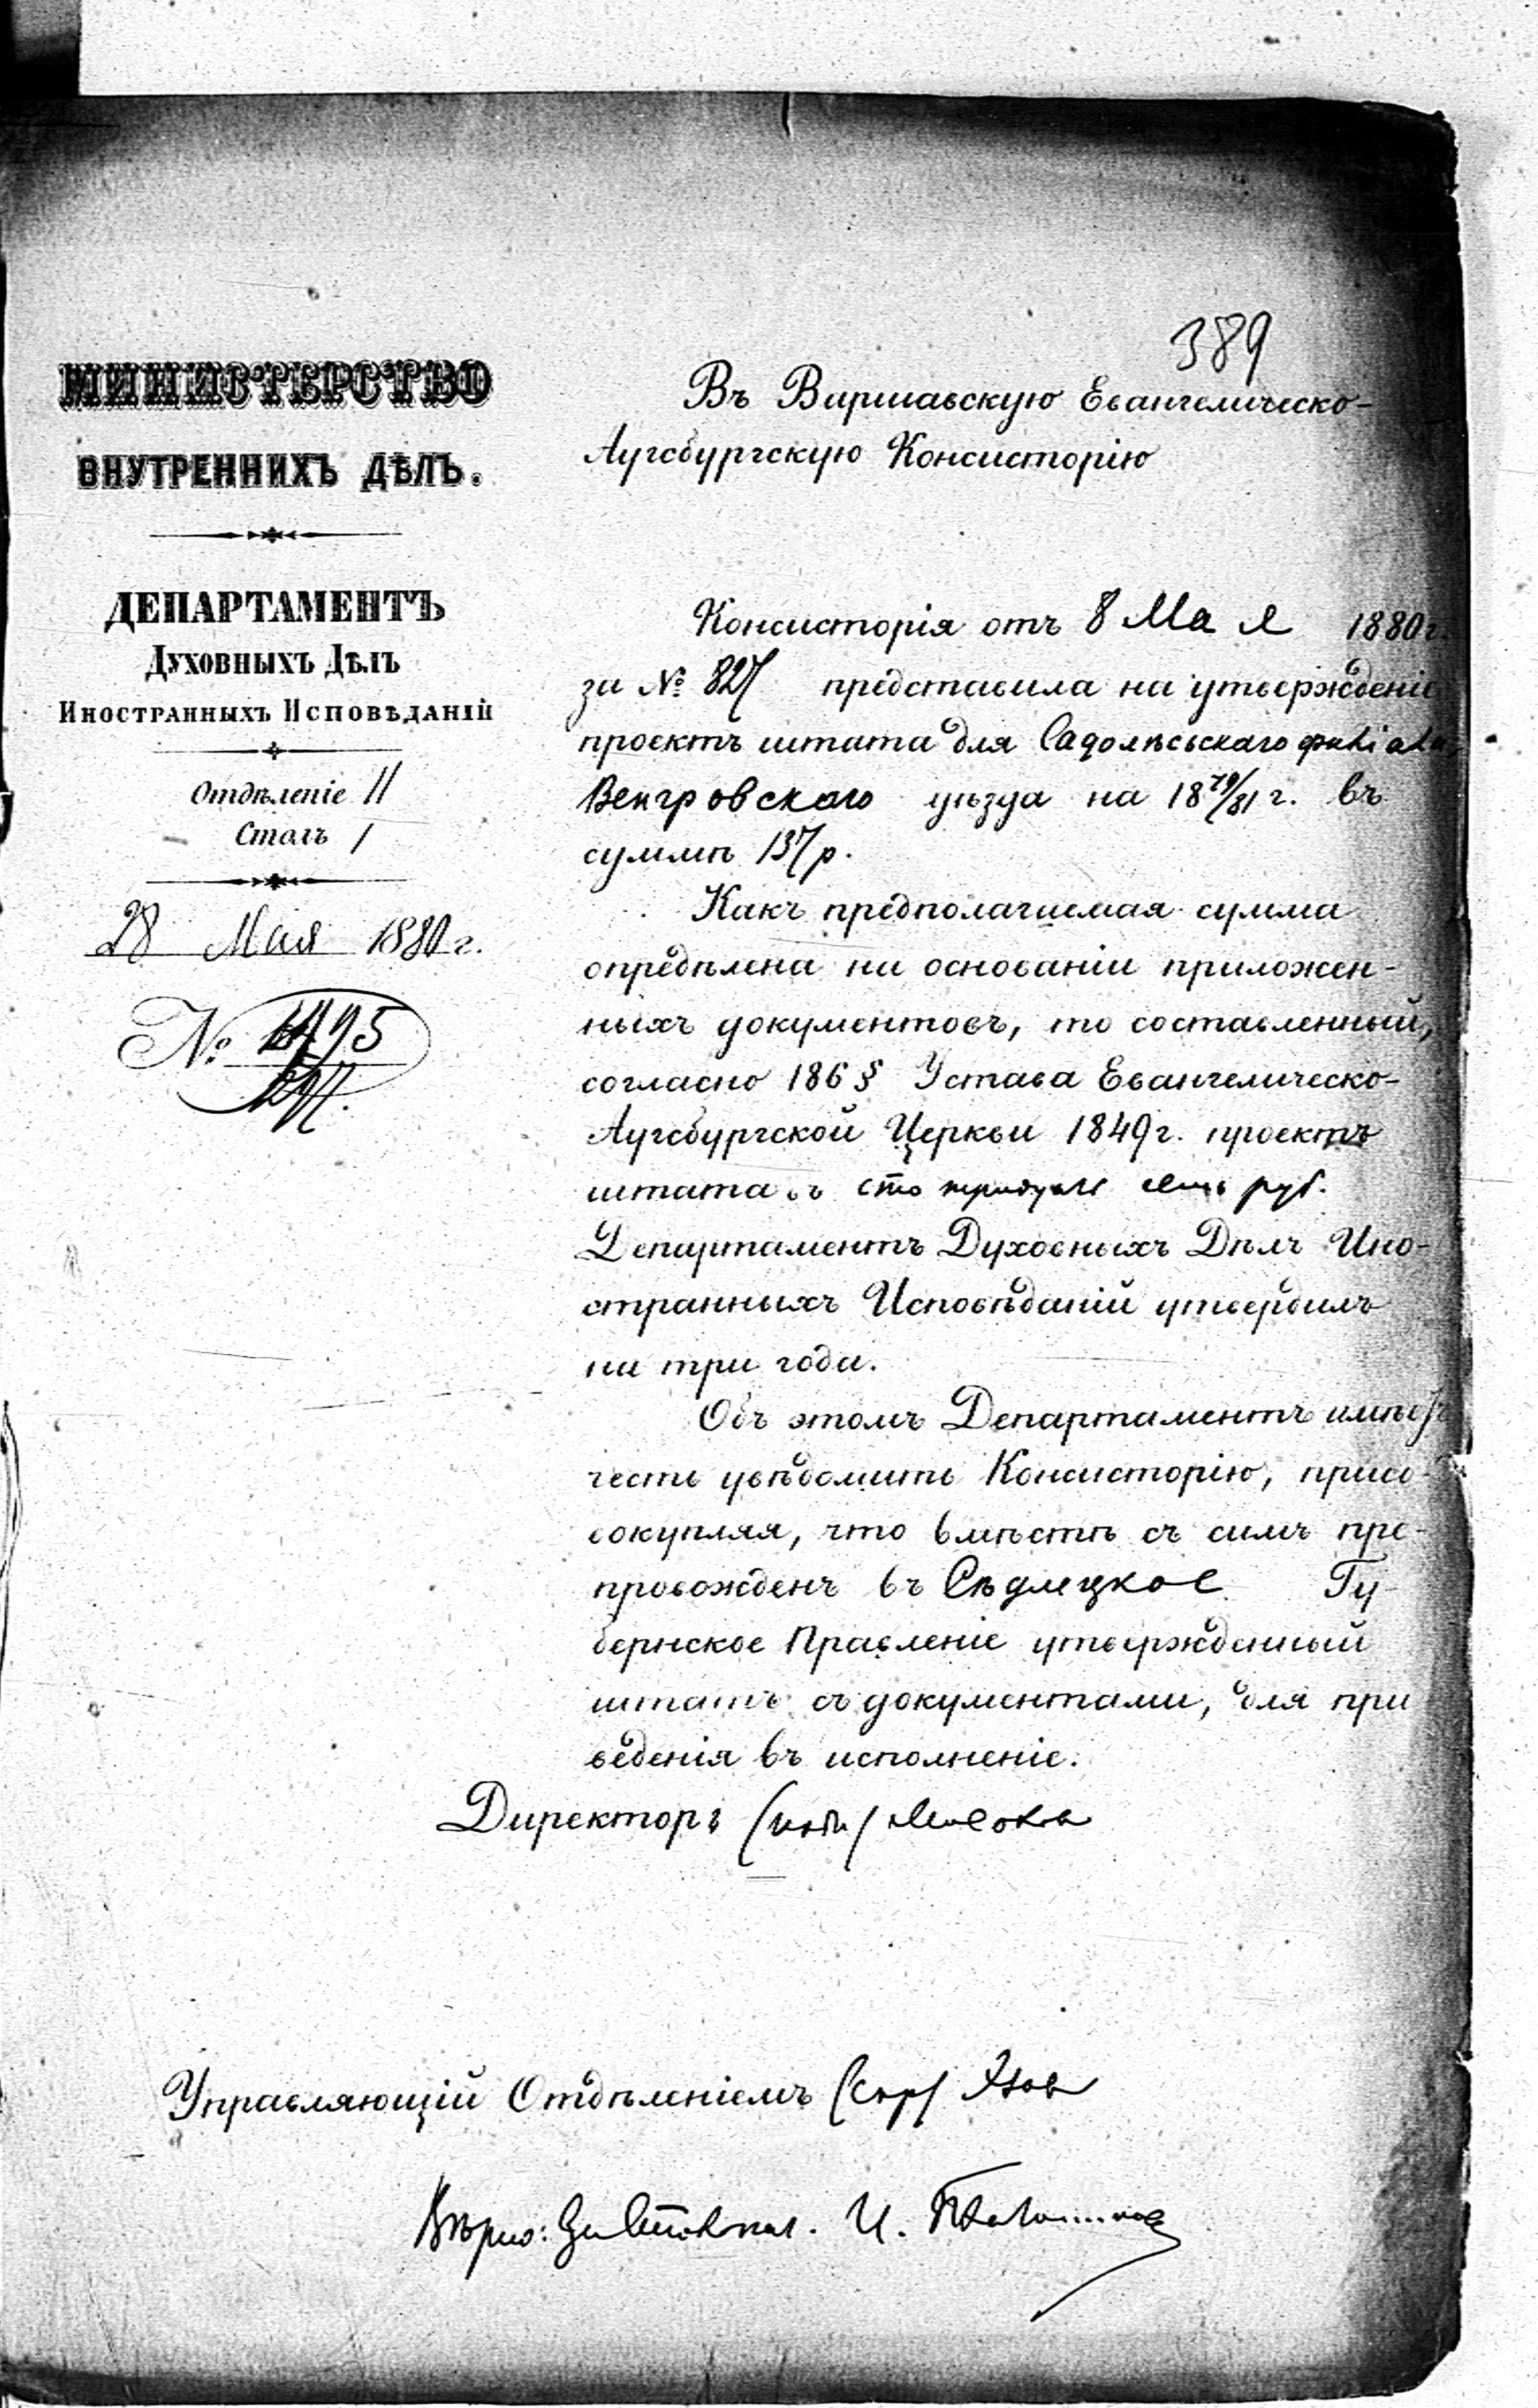 389
МИНИСТЕРСТВО
ВНУТРЕННИХЪ ДѢЛЪ.
ДЕПАРТАМЕНТЪ
Духовныхъ Дѣлъ
Иностранныхъ Исповѣданій
Отдѣленіе II
Столъ 1
28 Мая 1880 г.
№
Въ Варшавскую Евангелическо-
Аугсбургскую Консисторію
Консисторія отъ 8 Мая 1880 г.
за № 827 представила на утвержденіе
проектъ штата для Садолѣсьскаго филіала,
Венгровскаго уѣзда на 18 79/81 г. въ
суммѣ 137 р.
Какъ предполагаемая сумма
опредѣлена на основаніи приложен-
ныхъ документовъ, то составленный,
согласно 186 § Устава Евангелическо-
Аугсбургской Церкви 1849 г. проектъ
штата въ сто тридцать семь руб.
Департаментъ Духовныхъ Дѣлъ Ино-
странныхъ Исповѣданій утвердилъ
на три года.
Объ этомъ Департаментъ имѣетъ
честь увѣдомить Консисторію, присо-
вокупляя, что вмѣстѣ съ симъ пре-
провожденъ въ Сѣдлецкое Гу-
бернское Правленіе утвержденный
штатъ съ документами, для при
веденія въ исполненіе.
Директоръ (подп) Мосолов
Управляющій Отдѣленіемъ (скр)
Вѣрно: За Столонач. И.